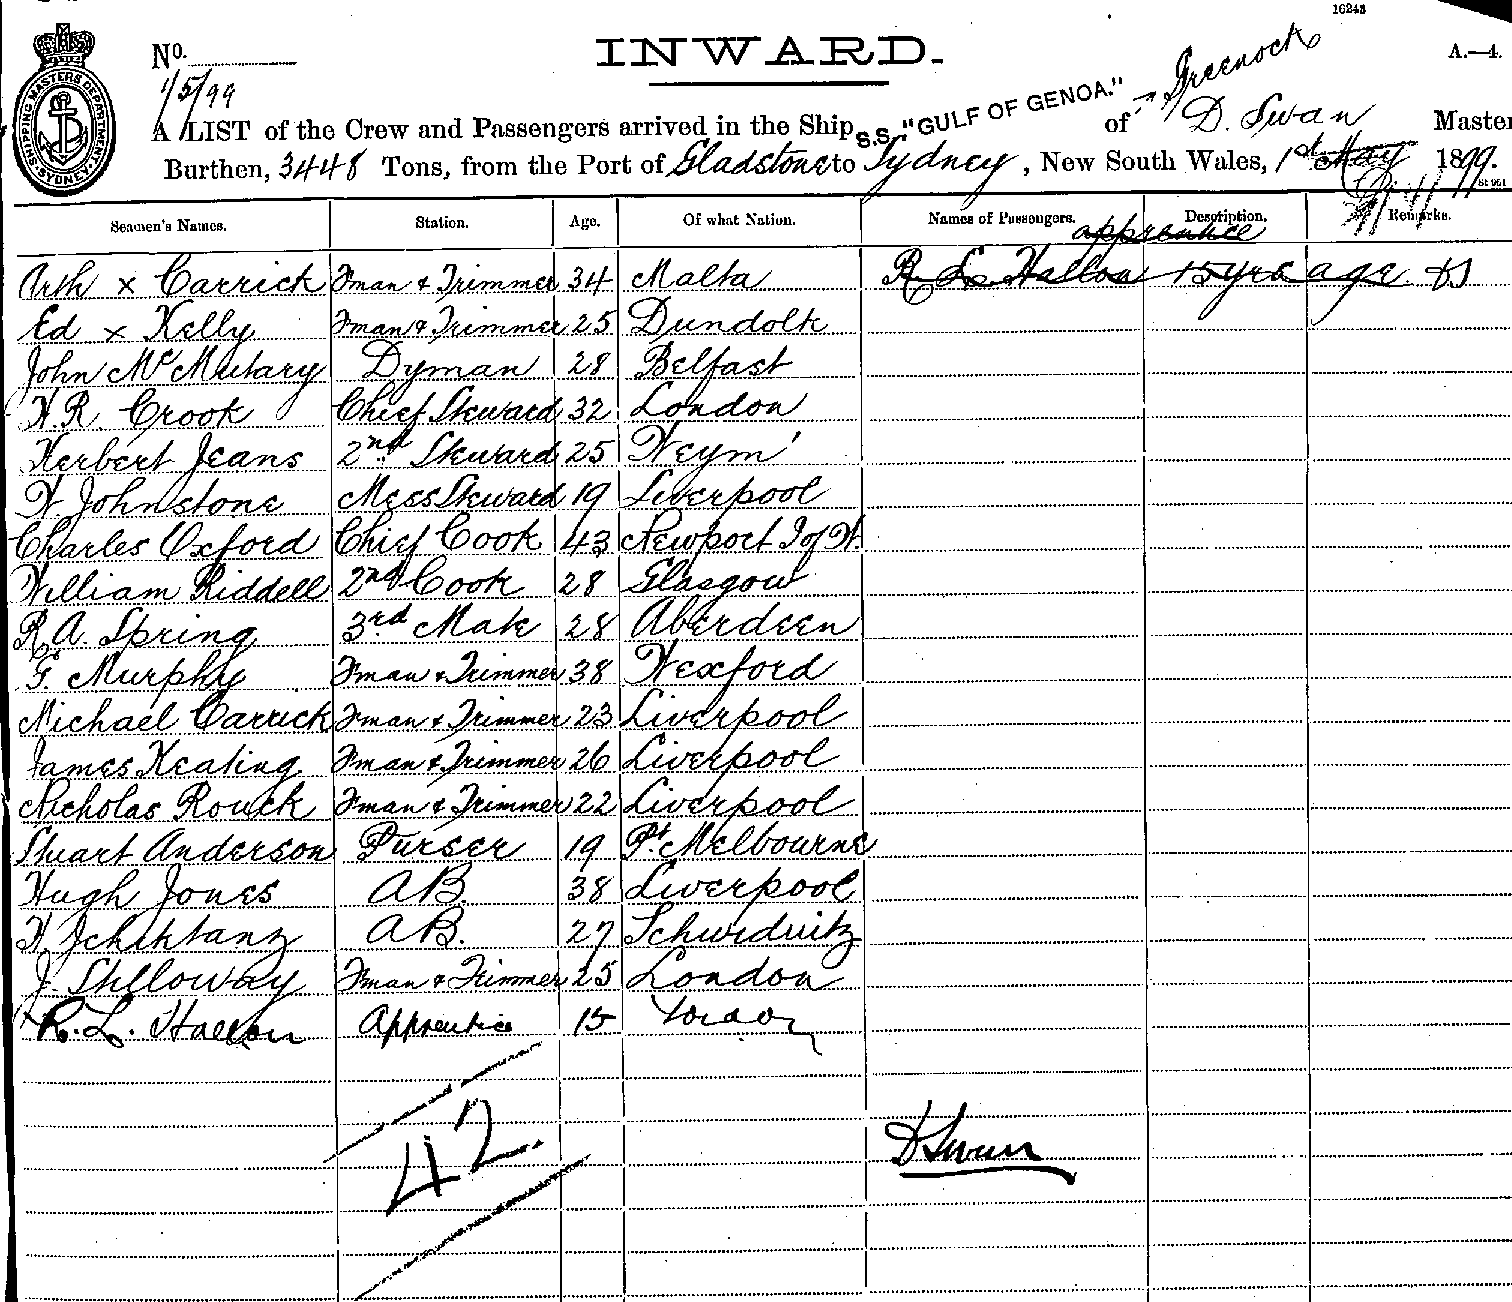 16243
INWARD.
A.—4.
No.
1/5/99
SHIPPING MASTERS DEPARTMENT SYDNEY
A LIST of the Crew and Passengers arrived in the Ship S.S. "GULF OF GENOA." of Greenock D. Swan Master
Burthen, 3448 Tons, from the Port of Gladstone to Sydney, New South Wales, 1st May 1899.
St 951
Seamen's Names. Station. Age. Of what Nation. Names of Passengers. Description. Remarks.
apprentice
Arth x Carrick Fman & Trimmer 34 Malta R L Hallon 15 yrs age DS
Ed x Kelly Fman & Trimmer 25 Dundolk
John McMutary Dyman 28 Belfast
H.R. Crook Chief Steward 32 London
Herbert Jeans 2nd Steward 25 Weym'
W Johnstone Mess Steward 19 Liverpool
Charles Oxford Chief Cook 43 Newport I of W.
William Riddell 2nd Cook 28 Glasgow
R.A. Spring 3rd Mate 28 Aberdeen
F. Murphy Fman & Trimmer 38 Wexford
Michael Carrick Fman & Trimmer 23 Liverpool
James Keating Fman & Trimmer 26 Liverpool
Nicholas Rouck Fman & Trimmer 22 Liverpool
Stuart Anderson Purser 19 Pt. Melbourne
Hugh Jones AB. 38 Liverpool
AB. 27 Schwednitz
J. Stelloway Fman & Trimmer 25 London
R. L. Hallon Apprentice 15
42.
D Swan